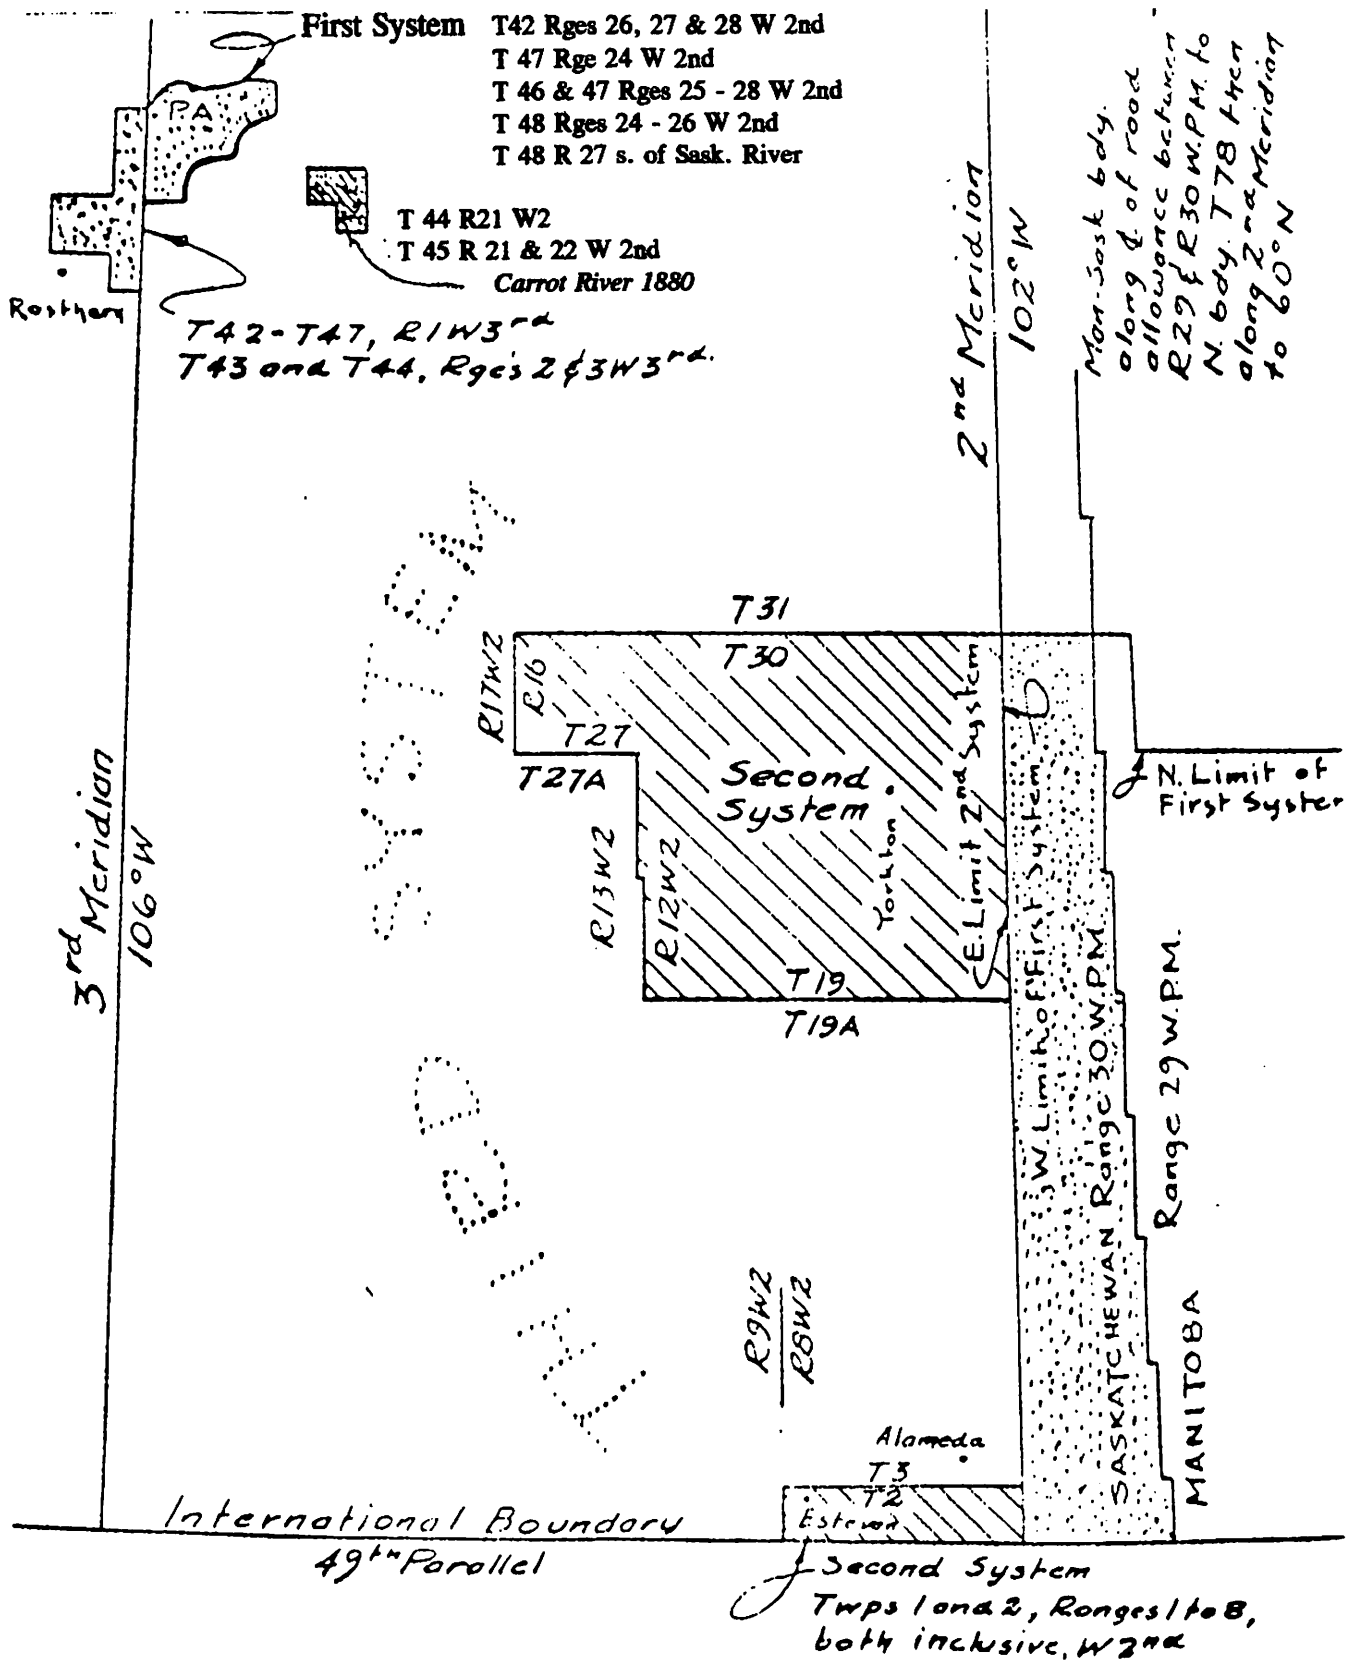 First System
T42 Rges 26, 27 & 28 W 2nd
T 47 Rge 24 W 2nd
T 46 & 47 Rges 25 - 28 W 2nd
T 48 Rges 24 - 26 W 2nd
T 48 R 27 s. of Sask. River
PA
T 44 R21 W2
T 45 R 21 & 22 W 2nd
Carrot River 1880
Rosthern
T42-T47, R1W3rd
T43 and T44, Rge's 2 & 3W3rd.
2nd Meridian
102°W
Man-Sask bdy.
along ₵ of road
allowance between
R29 & R30 W.P.M. to
N. bdy. T78 then
along 2nd Meridian
to 60°N
3rd Meridian
106°W
THIRD SYSTEM
T31
T30
R17W2
R16
T27
T27A
Second
System
Yorkton
R13W2
R12W2
T19
T19A
E. Limit 2nd System
W. Limit of First System
N. Limit of
First System
SASKATCHEWAN Range 30 W.P.M.
Range 29 W.P.M.
MANITOBA
R9W2
R8W2
Alameda
T3
T2
Estevan
International Boundary
49th Parallel
Second System
Twps 1 and 2, Ranges 1 to 8,
both inclusive, W 2nd